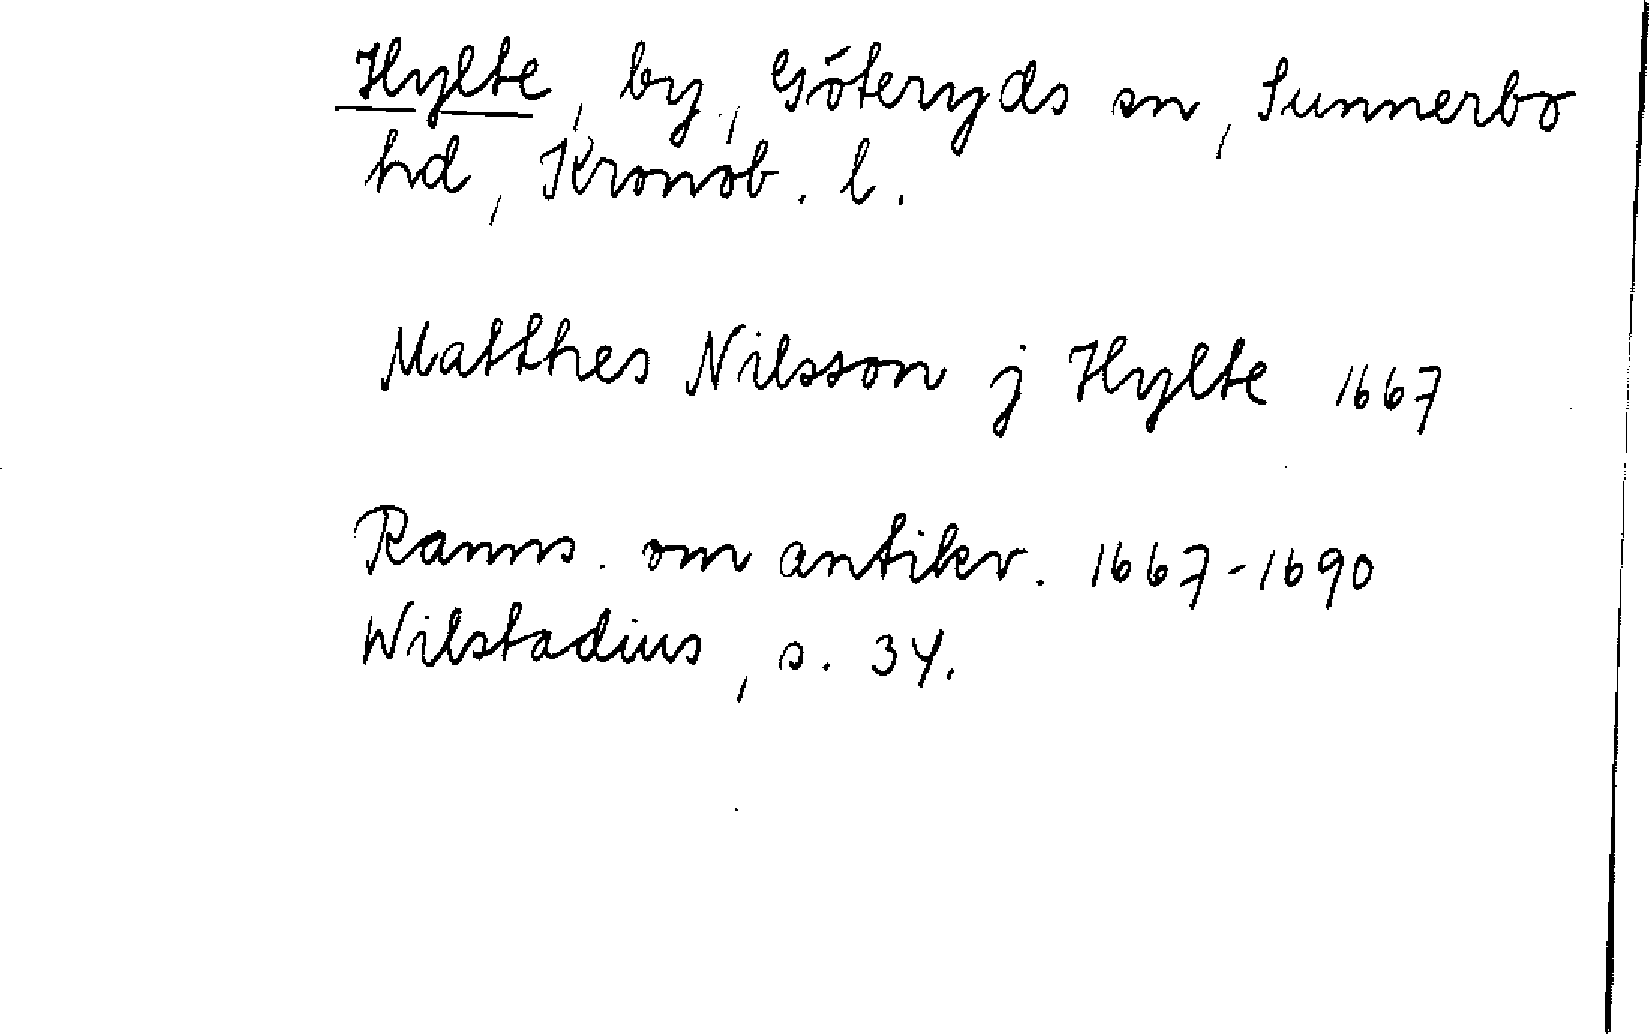 Hylte, by, Göteryds sn, Sunnerbo
hd, Kronob. l.
Matthes Nilsson j Hylte 1667
Ranns. om antikv. 1667-1690
Wilstadius, s. 34.